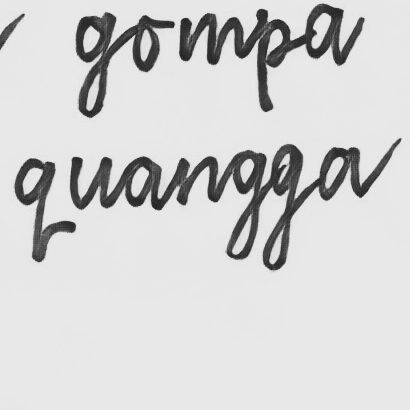 gompa
quangga